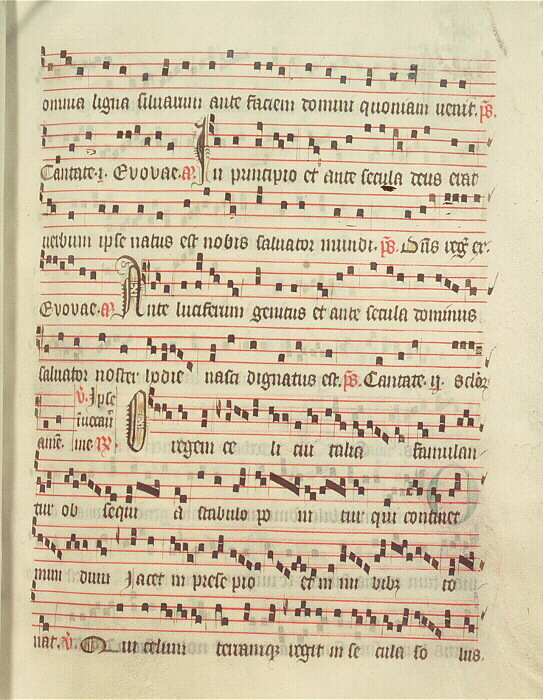 omnia ligna silvarum ante faciem domini quoniam venit. ps.
Cantate. j. Evovae. a. In principio et ante secula deus erat
verbum ipse natus est nobis salvator mundi. ps.
Evovae. a. Ante luciferum genitus et ante secula dominus
salvator noster hodie nasci dignatus est. ps. Cantate. ij.
V. Ipse
amen. me R. O regem ce li cui talia famulan
tur ob sequi a stabulo po ni tur qui continet
mun dum Jacet in prese pio et in nu bibus to
nat. V. Qui celum terramque regit in se cula so lus.